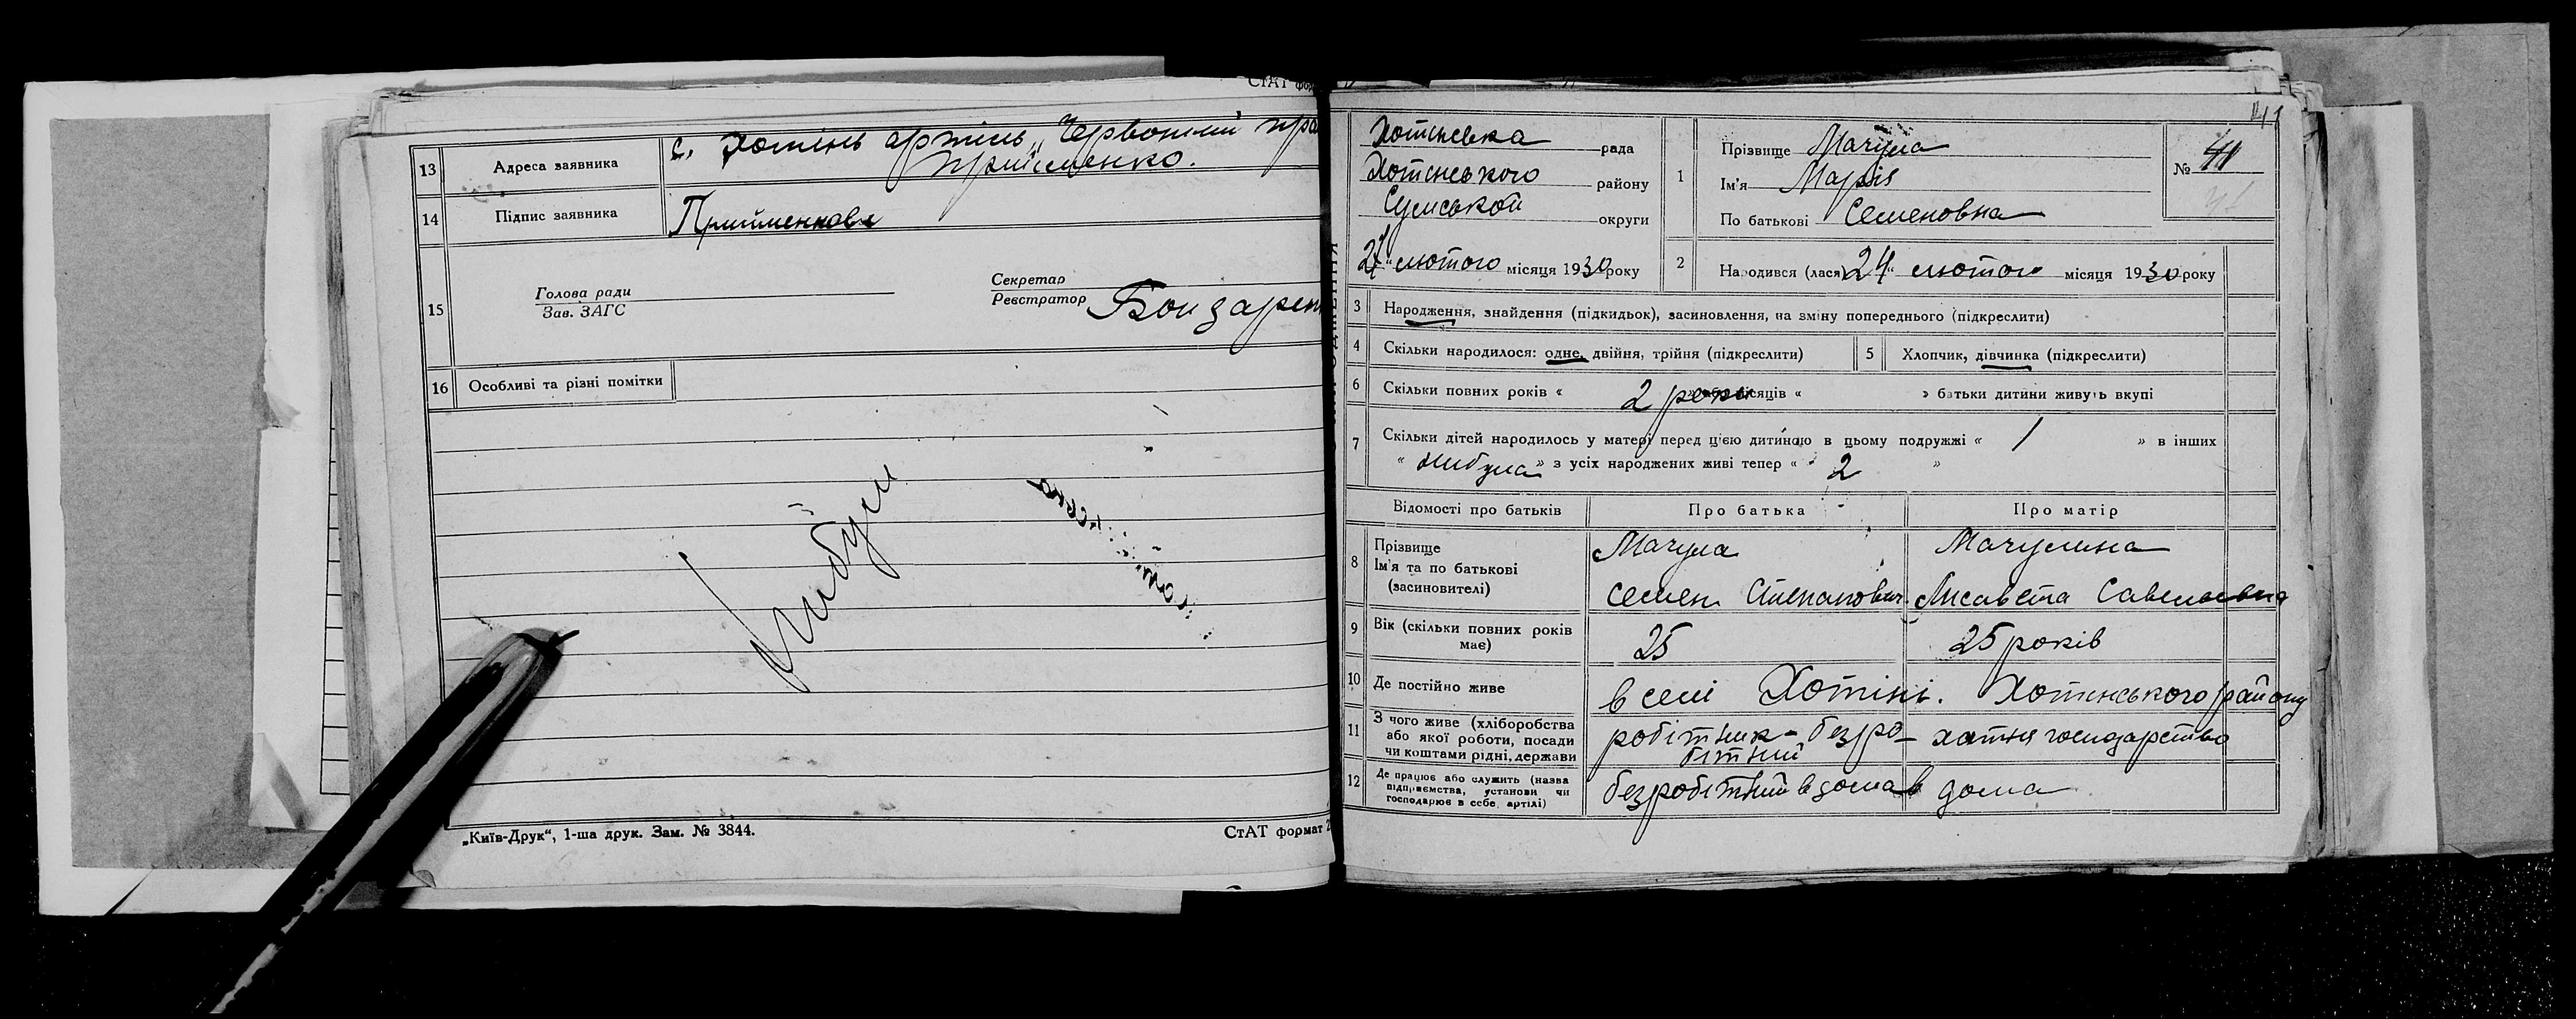 СтАТ
13 Адреса заявника с. Хотінь артіль „Червоний пра
Прийменко.
14 Підпис заявника Прийменкове
15 Голова ради
Зав. ЗАГС
Секретар
Реєстратор Бондарен
16 Особливі та різні помітки
„Київ-Друк“, 1-ша друк. Зам. № 3844.
СтАТ формат 2
41
Хотінська рада
Хотінського району
Сумськой округи
27 „ лютого місяця 1930 року
1 Прізвище Мачула
Ім'я Марія
По батькові Семеновна
№ 41
2 Народився (лася) 24 „ лютого місяця 1930 року
3 Народження, знайдення (підкидьок), засиновлення, на зміну попереднього (підкреслити)
4 Скільки народилося: одне, двійня, трійня (підкреслити)
5 Хлопчик, дівчинка (підкреслити)
6 Скільки повних років « 2 роки » або місяців « » батьки дитини живуть вкупі
7 Скільки дітей народилось у матері перед цією дитиною в цьому подружжі « 1 » в інших
« » з усіх народжених живі тепер « 2 »
Відомості про батьків Про батька Про матір
8 Прізвище Мачула Мачулина
Ім'я та по батькові
(засиновителі) Семен Степанович Лисавета Савельевна
9 Вік (скільки повних років має) 25 25 років
10 Де постійно живе в селі Хотіні. Хотінського району
11 З чого живе (хліборобства
або якої роботи, посади
чи коштами рідні, держави
робітник - безро-
бітний
хатня господарство
12 Де працює або служить (назва
підприємства, установи чи
господарює в себе, артілі)
безробітний в дома в дома